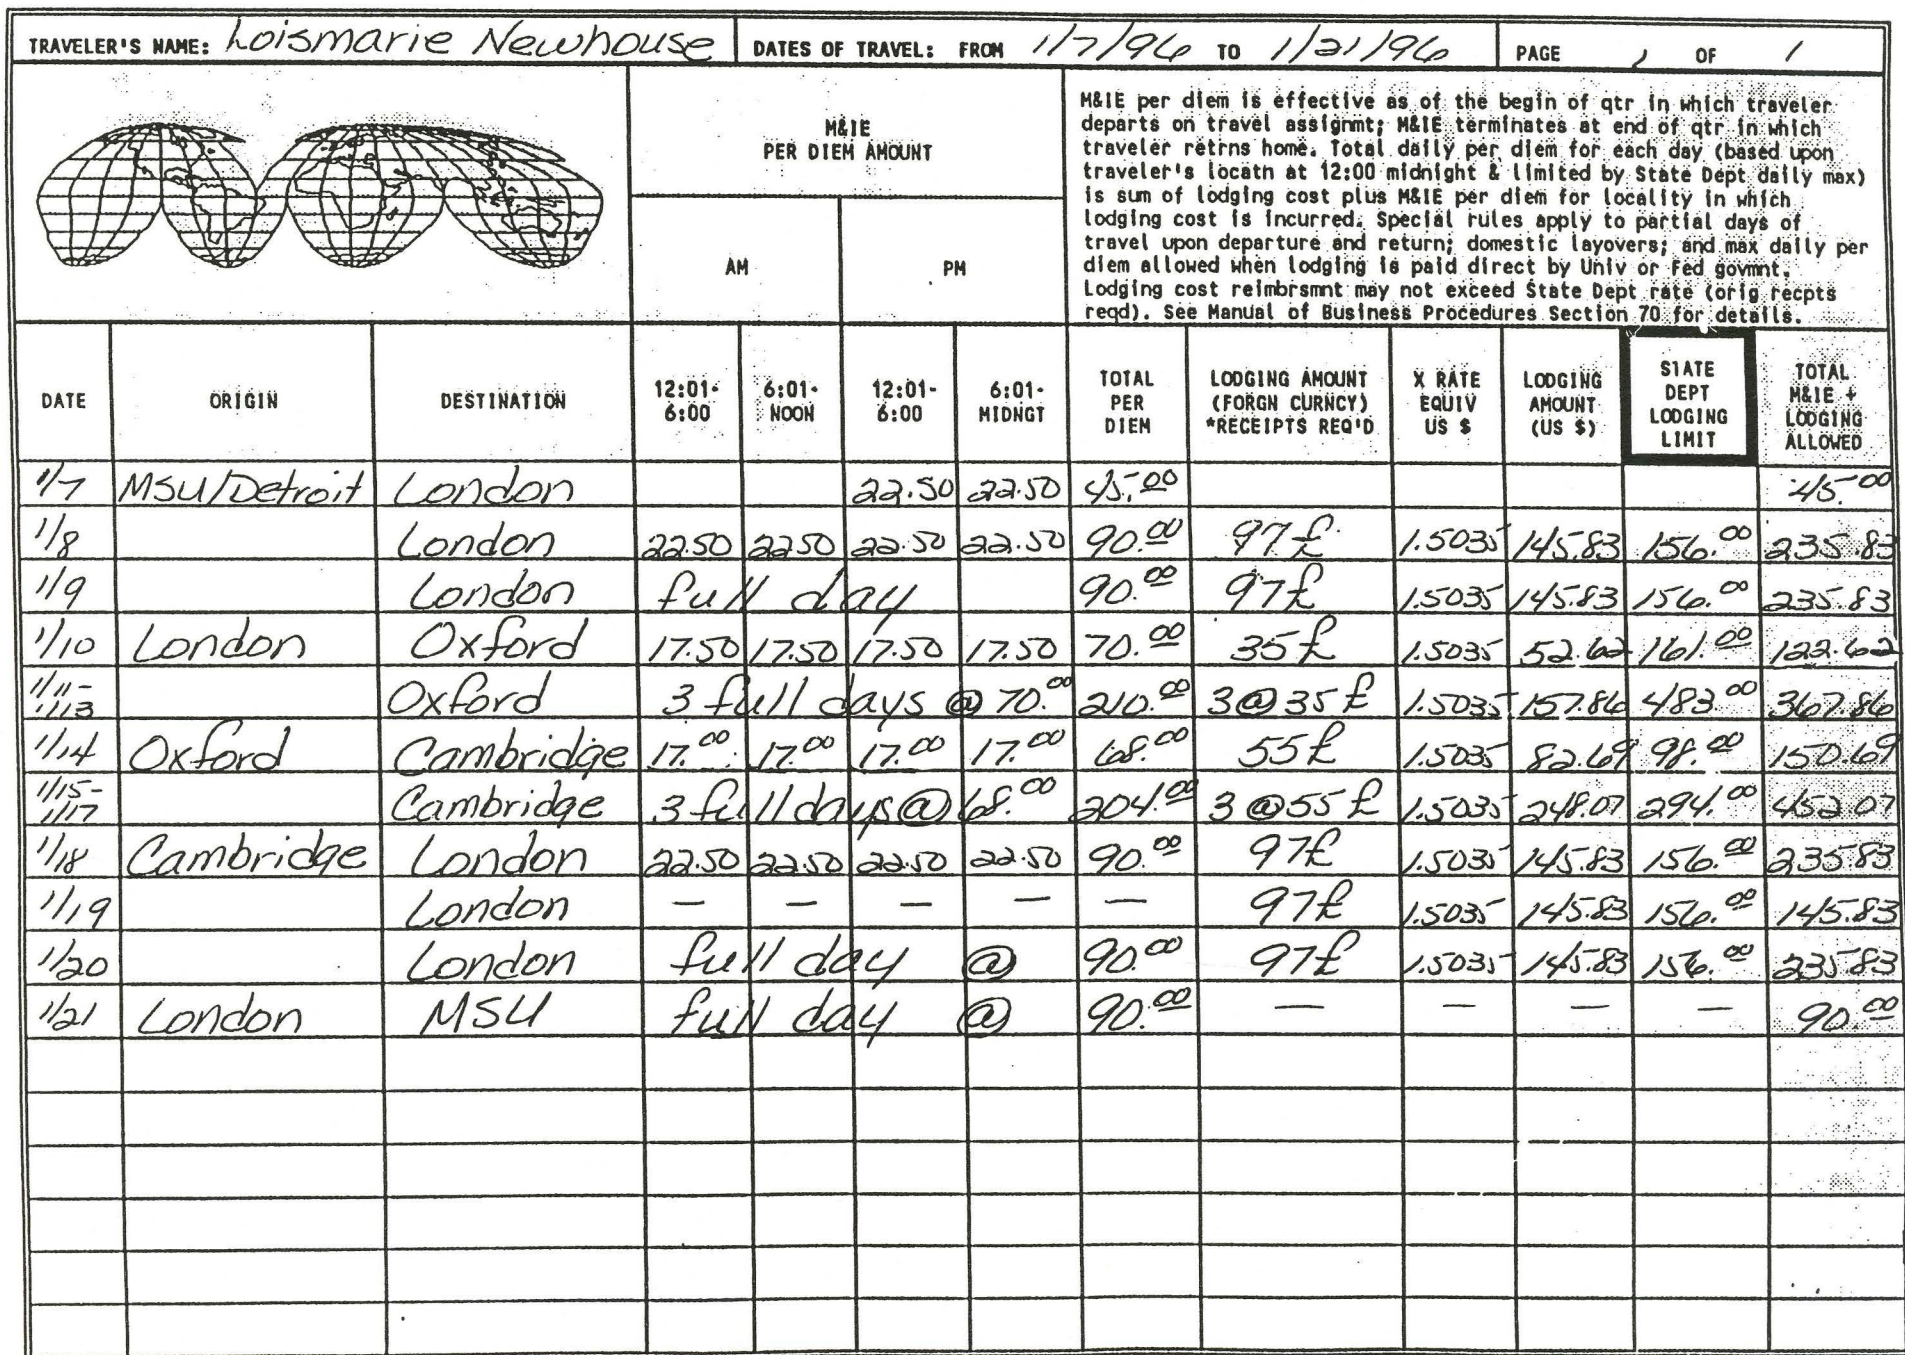 TRAVELER'S NAME: Loismarie Newhouse DATES OF TRAVEL: FROM 1/7/96 TO 1/21/96 PAGE 1 OF 1
M&IE
PER DIEM AMOUNT
AM PM
M&IE per diem is effective as of the begin of qtr in which traveler
departs on travel assignmt; M&IE terminates at end of qtr in which
traveler retirns home. Total daily per diem for each day (based upon
traveler's locatn at 12:00 midnight & limited by State Dept daily max)
is sum of lodging cost plus M&IE per diem for locality in which
lodging cost is incurred. Special rules apply to partial days of
travel upon departure and return; domestic layovers; and max daily per
diem allowed when lodging is paid direct by Univ or Fed govmnt.
Lodging cost reimbrsmnt may not exceed State Dept rate (orig recpts
reqd). See Manual of Business Procedures Section 70 for details.
DATE ORIGIN DESTINATION 12:01-6:00 6:01-NOON 12:01-6:00 6:01-MIDNGT TOTAL PER DIEM LODGING AMOUNT (FORGN CURNCY) *RECEIPTS REQ'D X RATE EQUIV US $ LODGING AMOUNT (US $) STATE DEPT LODGING LIMIT TOTAL M&IE + LODGING ALLOWED
1/7 MSU/Detroit London 22.50 22.50 45.00 45.00
1/8 London 22.50 22.50 22.50 22.50 90.00 97£ 1.5035 145.83 156.00 235.83
1/9 London full day 90.00 97£ 1.5035 145.83 156.00 235.83
1/10 London Oxford 17.50 17.50 17.50 17.50 70.00 35£ 1.5035 52.62 161.00 122.62
1/11-1/13 Oxford 3 full days @ 70.00 210.00 3@35£ 1.5035 157.86 483.00 367.86
1/14 Oxford Cambridge 17.00 17.00 17.00 17.00 68.00 55£ 1.5035 82.69 98.00 150.69
1/15-1/17 Cambridge 3 full days @ 68.00 204.00 3@55£ 1.5035 248.07 294.00 452.07
1/18 Cambridge London 22.50 22.50 22.50 22.50 90.00 97£ 1.5035 145.83 156.00 235.83
1/19 London — — — — — 97£ 1.5035 145.83 156.00 145.83
1/20 London full day @ 90.00 97£ 1.5035 145.83 156.00 235.83
1/21 London MSU full day @ 90.00 — — — — 90.00